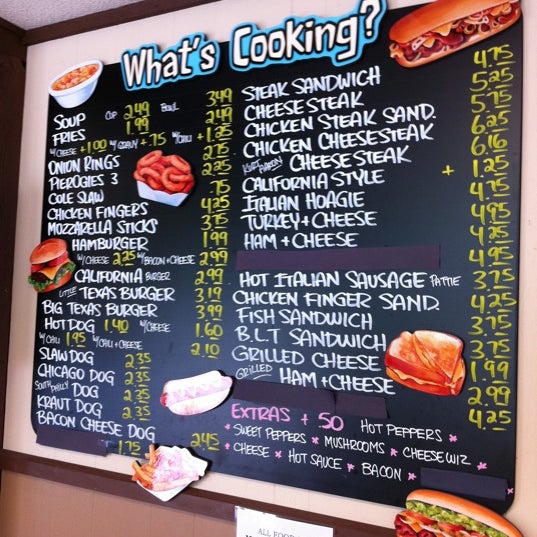 What's Cooking?
SOUP CUP 2.49 BOWL 3.49
FRIES 1.99 2.49
W/CHEESE +1.00 W/GRAVY +.75 W/CHILI +1.25
ONION RINGS 2.75
PIEROGIES 3 2.25
COLE SLAW .75
CHICKEN FINGERS 4.25
MOZZARELLA STICKS 3.75
HAMBURGER 1.99
W/CHEESE 2.25 W/BACON+CHEESE 2.99
CALIFORNIA BURGER 2.99
LITTLE TEXAS BURGER 3.19
BIG TEXAS BURGER 3.99
HOT DOG 1.40 W/CHEESE 1.60
W/CHILI 1.95 W/CHILI+CHEESE 2.10
SLAW DOG 2.35
CHICAGO DOG 2.35
SOUTH PHILLY DOG 2.35
KRAUT DOG 2.35
BACON CHEESE DOG 2.45
1.75
STEAK SANDWICH 4.75
CHEESESTEAK 5.25
CHICKEN STEAK SAND. 5.75
CHICKEN CHEESESTEAK 6.25
CHEESESTEAK 6.16
CALIFORNIA STYLE + 1.25
ITALIAN HOAGIE 4.75
TURKEY+CHEESE 4.95
HAM+CHEESE 4.25
4.95
HOT ITALIAN SAUSAGE PATTIE 3.75
CHICKEN FINGER SAND. 4.25
FISH SANDWICH 3.75
B.L.T SANDWICH 3.75
GRILLED CHEESE 1.99
GRILLED HAM+CHEESE 2.99
4.25
EXTRAS + 50 HOT PEPPERS *
* SWEET PEPPERS * MUSHROOMS * CHEESEWIZ *
* CHEESE * HOT SAUCE * BACON *
ALL FOOD